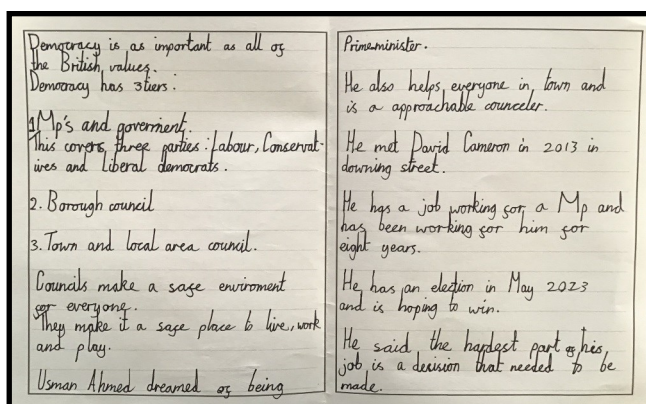 Democracy is as important as all of
the British values.
Democracy has 3 tiers:
1 Mp's and goverment.
This covers three parties: Labour, Conservat-
ives and Liberal democrats.
2. Borough council
3. Town and local area council.
Councils make a safe enviroment
for everyone.
They make it a safe place to live, work
and play.
Usman Ahmed dreamed of being
Prime minister.
He also helps everyone in town and
is a approachable counceler.
He met David Cameron in 2013 in
downing street.
He has a job working for a Mp and
has been working for him for
eight years.
He has an election in May 2023
and is hoping to win.
He said the hardest part of his
job is a decision that needed to be
made.